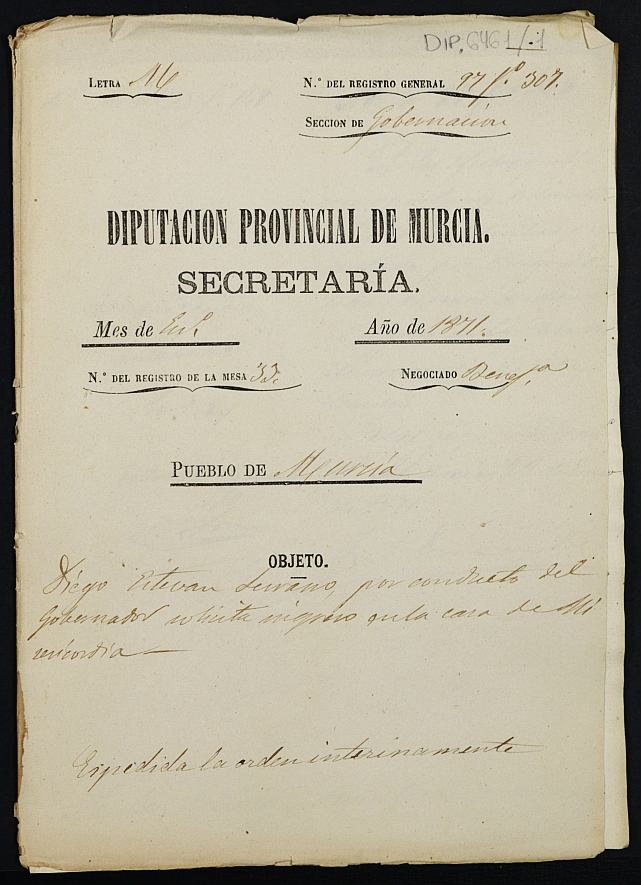 DIP, 6461/1
LETRA M
N.º DEL REGISTRO GENERAL 97 f.º 307.
SECCION DE Gobernación
DIPUTACION PROVINCIAL DE MURCIA.
SECRETARÍA.
Mes de En.º
Año de 1871.
N.º DEL REGISTRO DE LA MESA 33.
NEGOCIADO Benef.a
PUEBLO DE Murcia
OBJETO.
Diego Estevan Serrano, por conducto del
Gobernador solicita ingreso en la casa de Mi
sericordia
Espedida la orden interinamente